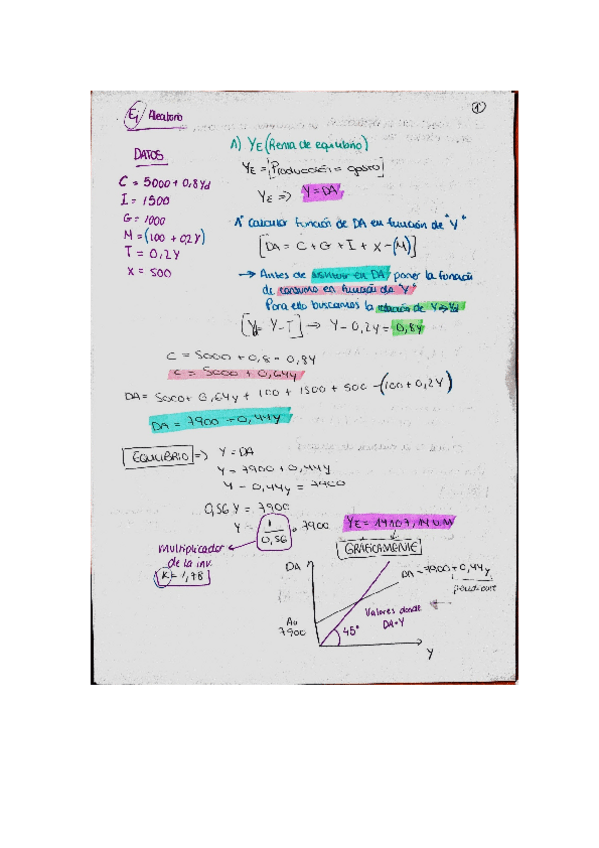 Ej Aleatorio
1
DATOS
C = 5000 + 0,8Yd
I = 1500
G = 1000
M = (100 + 0,2Y)
T = 0,2Y
X = 500
1) YE (Renta de equilibrio)
YE = [Producción = gasto]
YE => Y = DA
1º Calcular función de DA en función de "Y"
[DA = C + G + I + X - (M)]
→ Antes de en DA, poner la función
de consumo en función de "Y"
Para ello buscamos la relación de Y → Yd
[Yd = Y - T] → Y - 0,2Y = 0,8Y
C = 5000 + 0,8 · 0,8Y
C = 5000 + 0,64Y
DA = 5000 + 0,64Y + 100 + 1500 + 500 - (100 + 0,2Y)
DA = 7900 + 0,44Y
EQUILIBRIO => Y = DA
Y = 7900 + 0,44Y
Y - 0,44Y = 7900
0,56 Y = 7900
Y = 1/0,56 · 7900
YE = 14107,14 u.m
Multiplicador
de la inv.
K = 1,78
GRÁFICAMENTE
DA
DA = 7900 + 0,44Y
pendiente
Valores donde
DA = Y
Au
7900
45°
Y